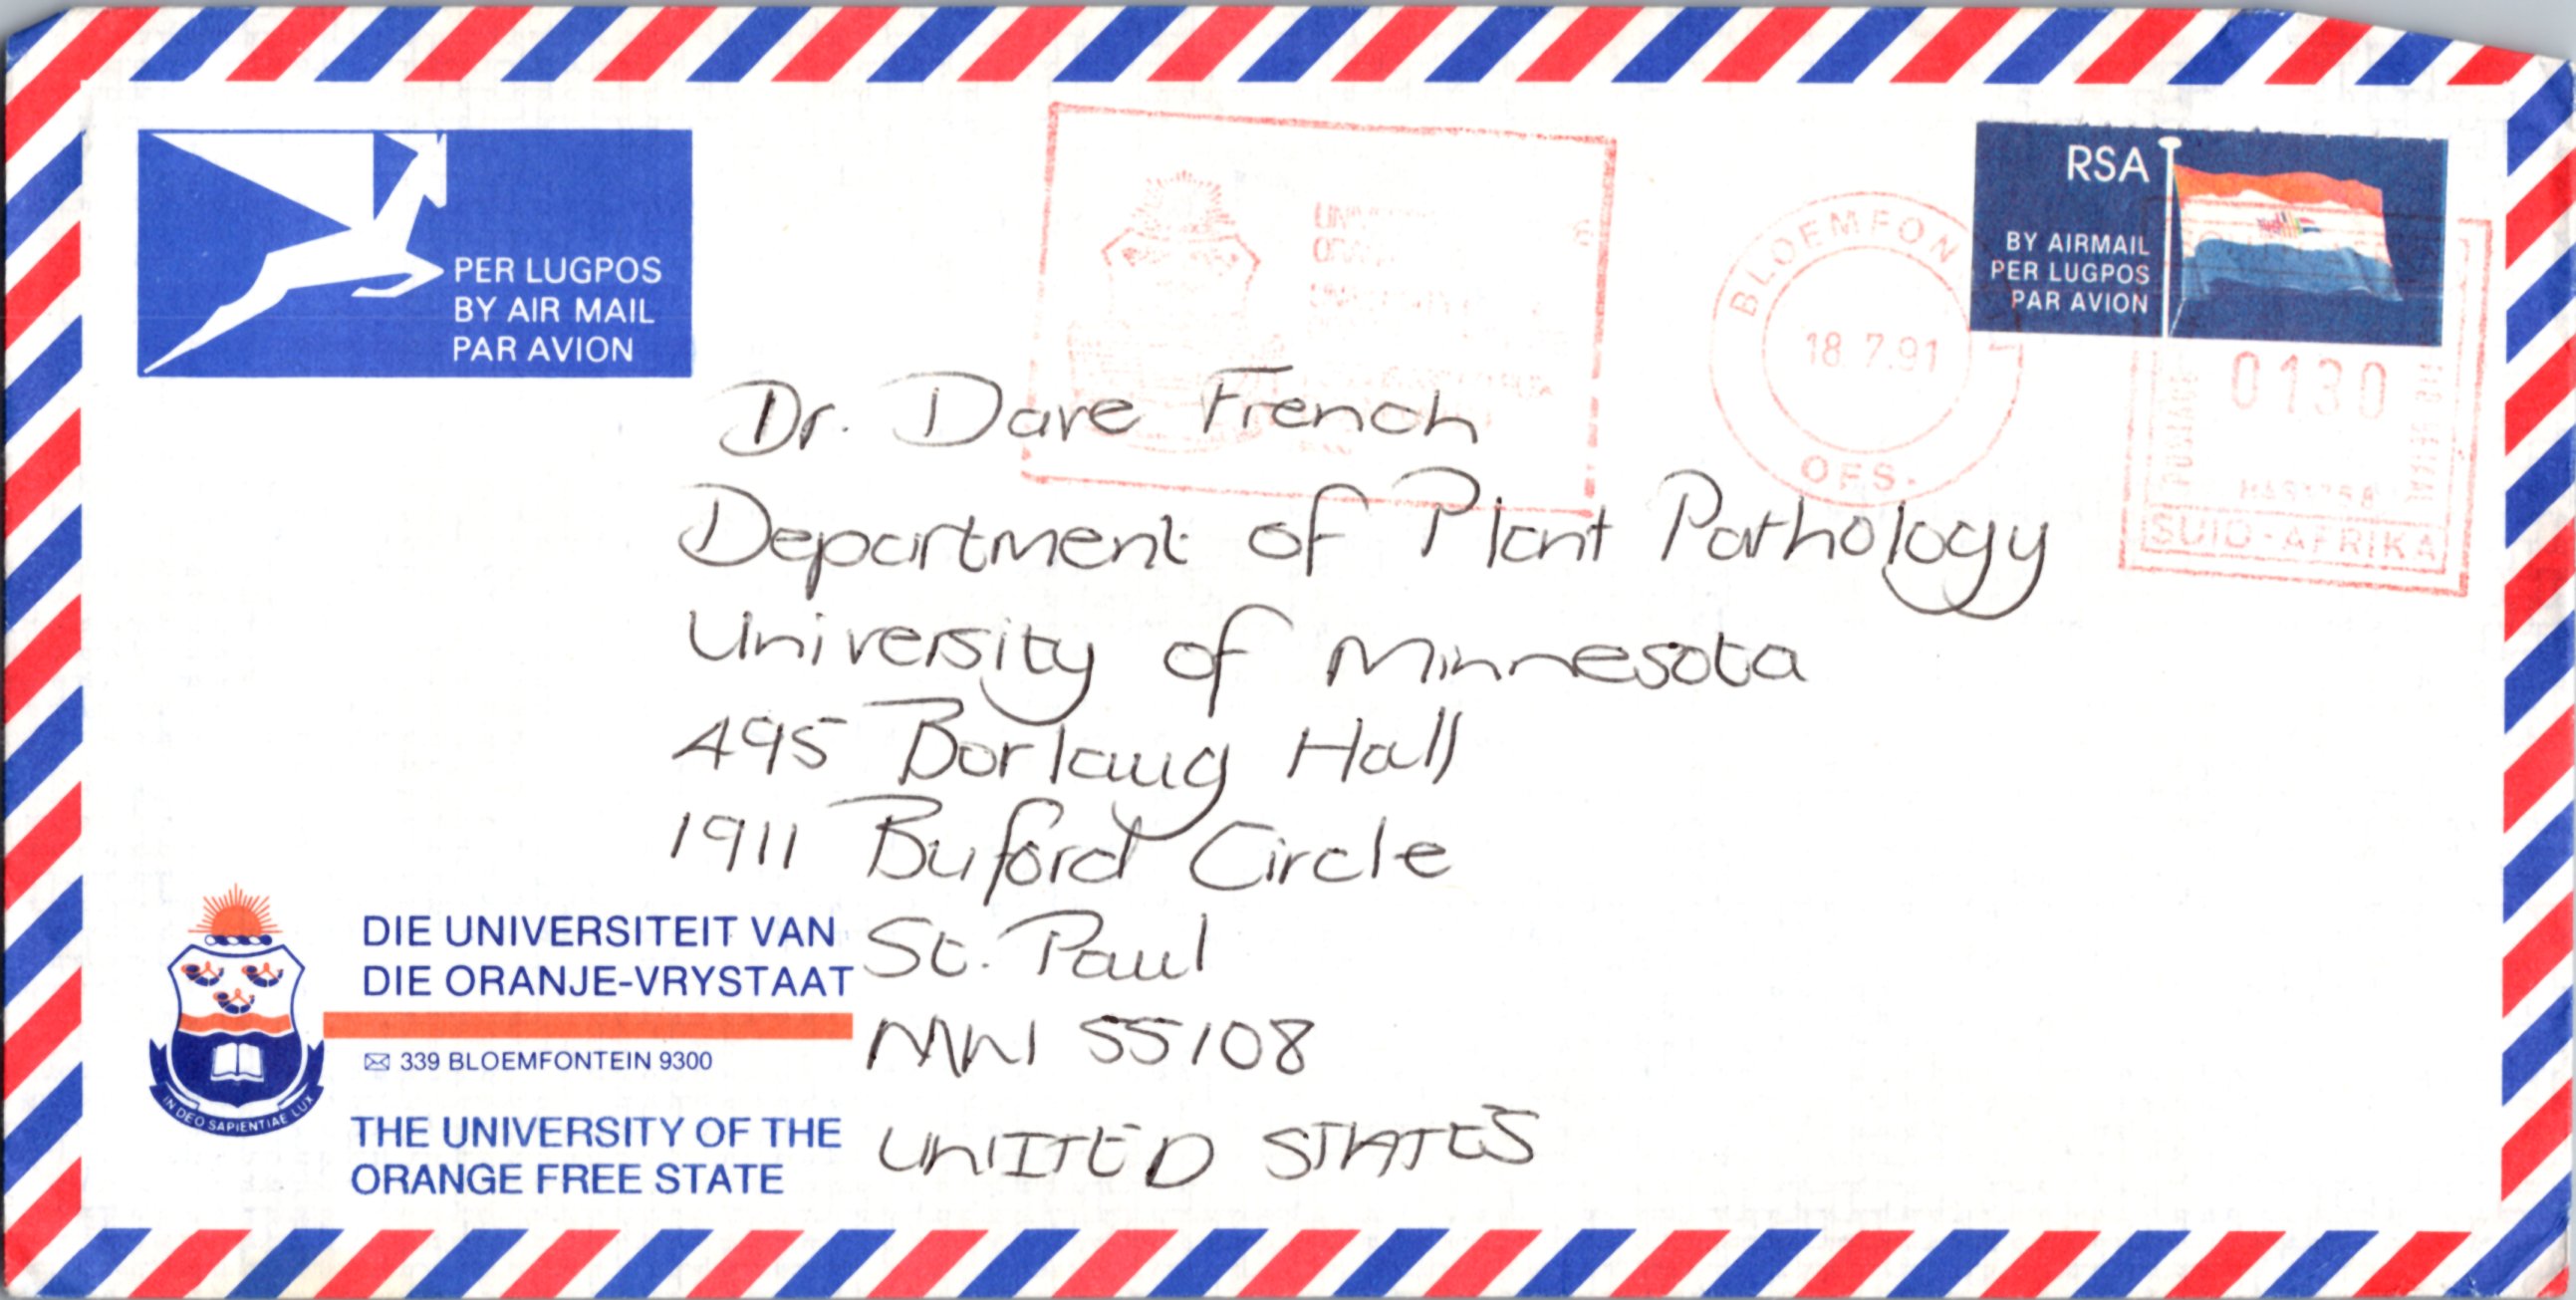 PER LUGPOS
BY AIR MAIL
PAR AVION
BLOEMFON
18 7.91
OFS.
RSA
BY AIRMAIL
PER LUGPOS
PAR AVION
0130
SUID-AFRIKA
Dr. Dave French
Department of Plant Pathology
University of Minnesota
495 Borlaug Hall
1911 Buford Circle
St. Paul
MN 55108
UNITED STATES
DIE UNIVERSITEIT VAN
DIE ORANJE-VRYSTAAT
339 BLOEMFONTEIN 9300
THE UNIVERSITY OF THE
ORANGE FREE STATE
IN DEO SAPIENTIAE LUX